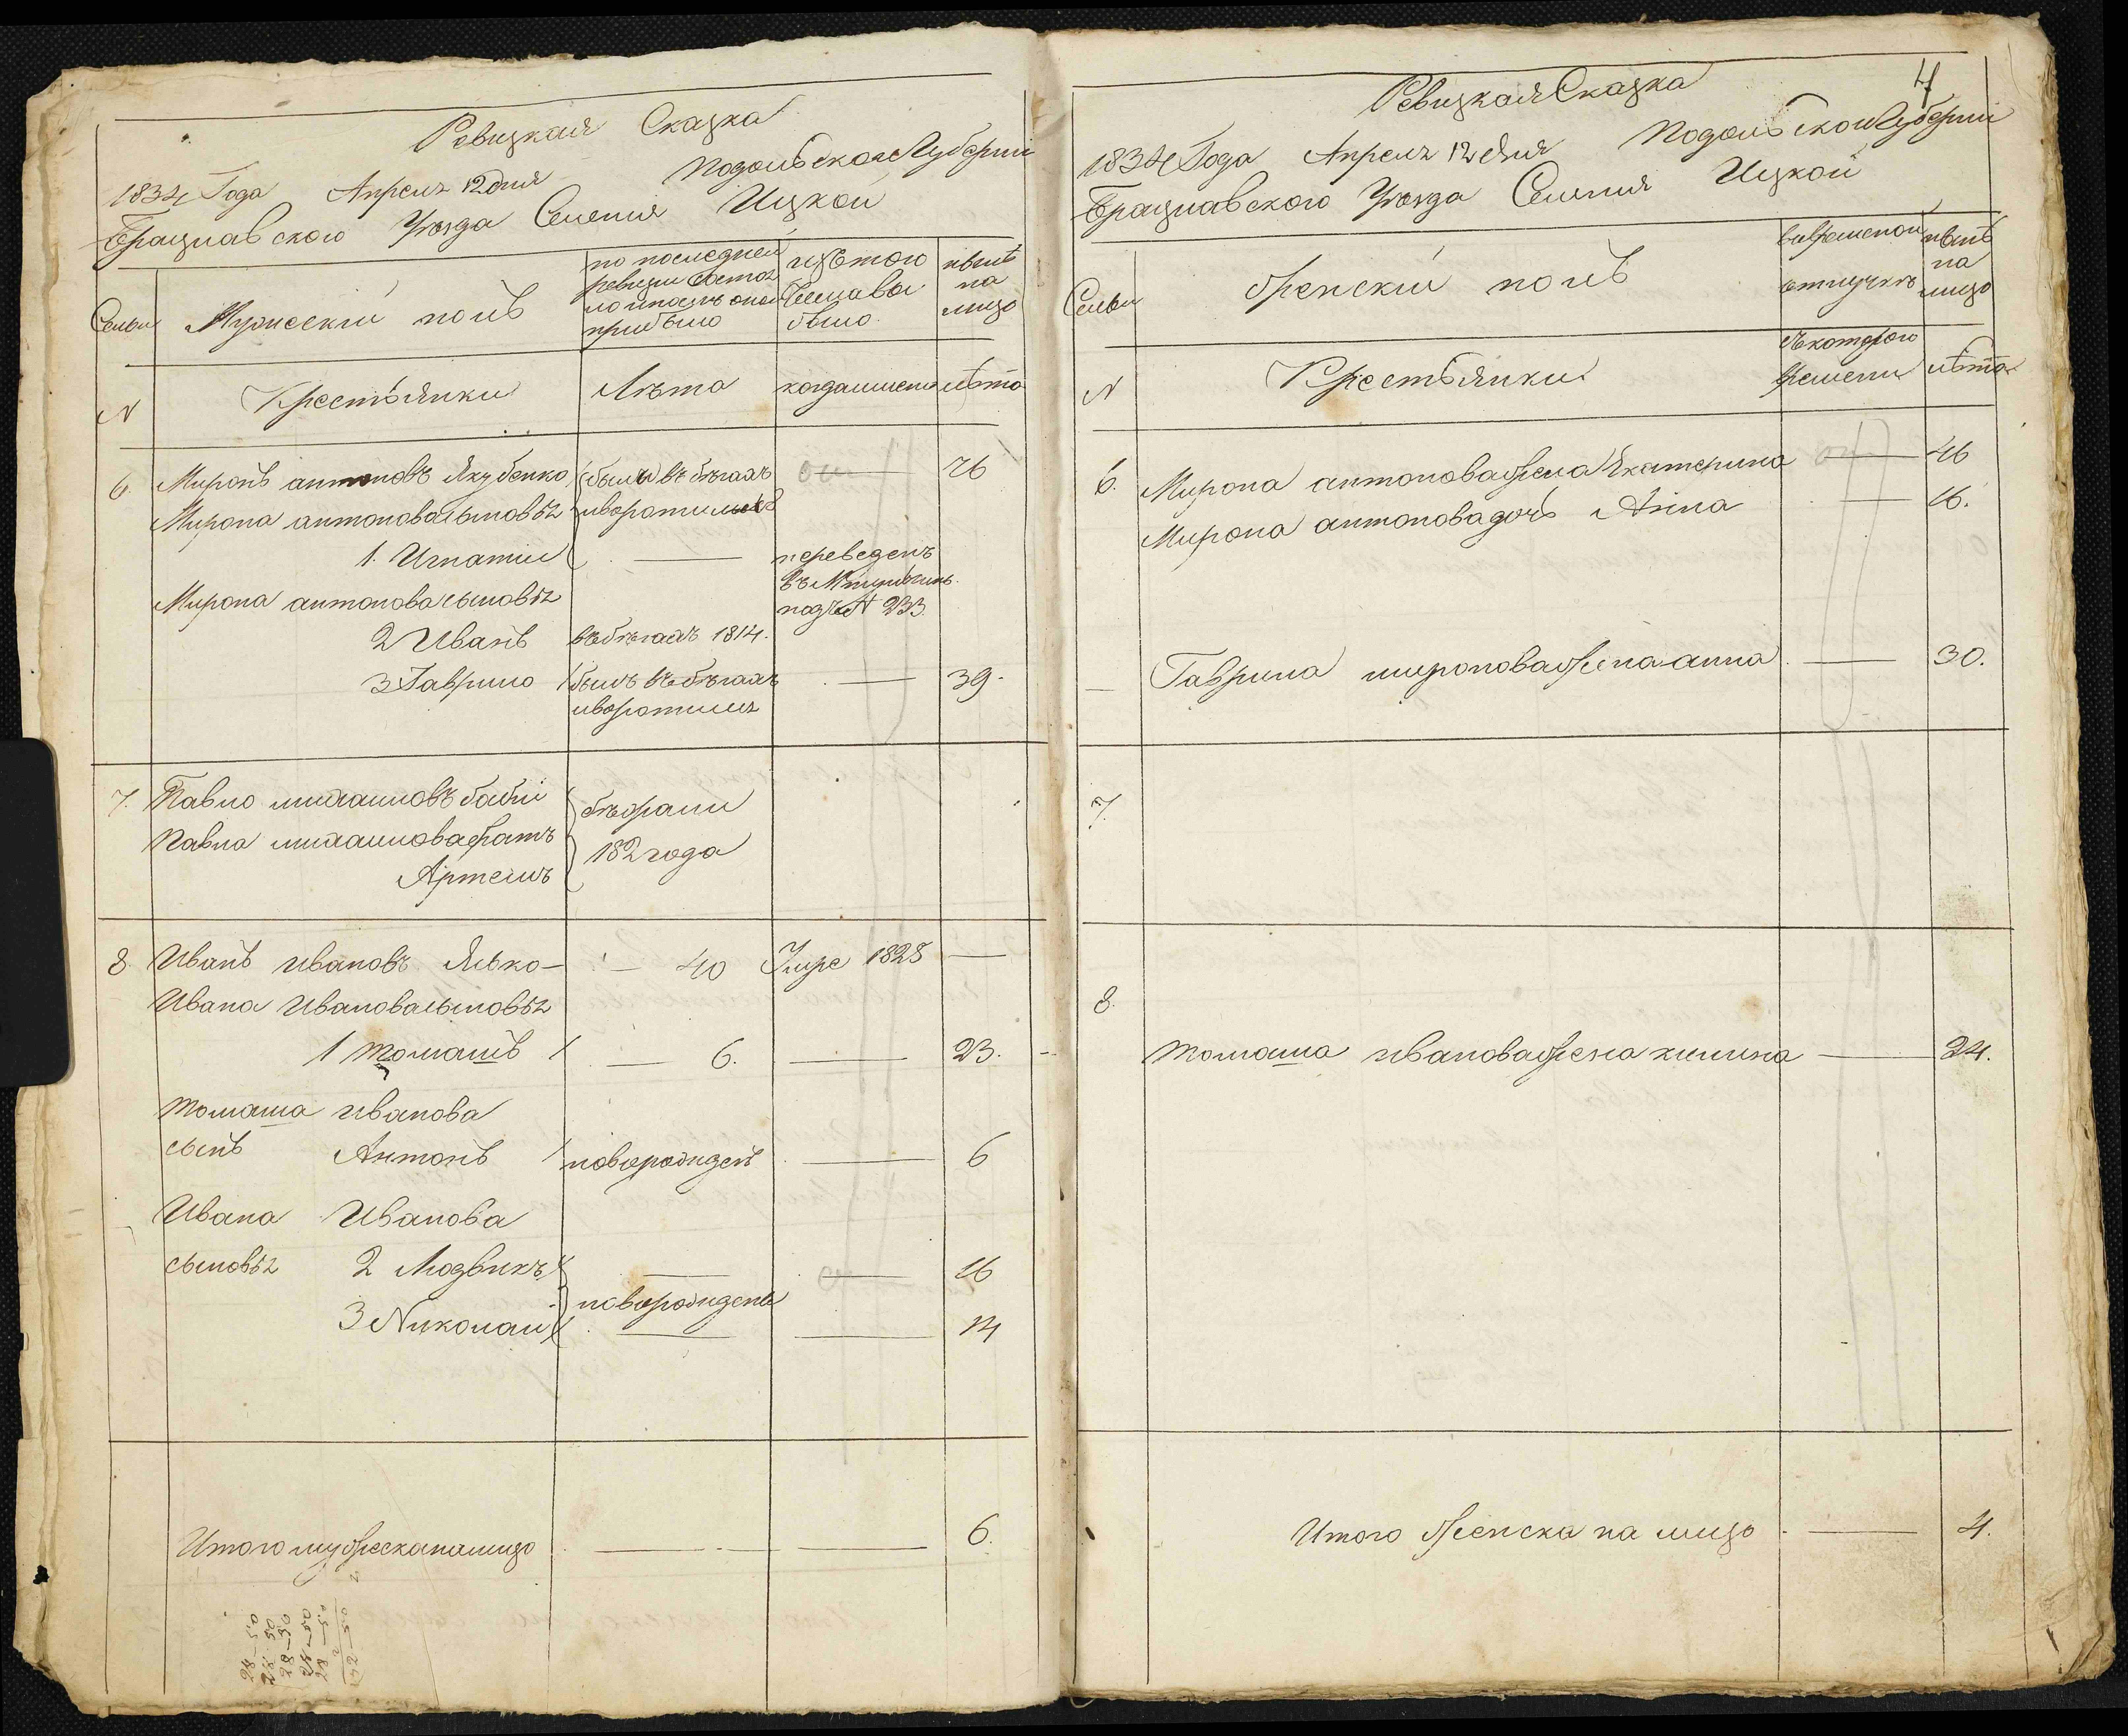 Ревизкая Сказка
1834 Года Апреля 12 дня Подольской Губерніи
Брацлавского Уѣзда Селенія Ицкой
Семьи
Мужескій полъ
по последней
ревизіи состоя
прибыло
изътого
Числа вы
было
нынѣ
на
лицо
N
Крестьянки
Лѣта
когда именно
лѣта
6. Миронъ антоновъ Якубенко былъ въ бѣгахъ 76
Мирона антонова сыновья
1. Игнатій — переведенъ
подъ N 233.
Мирона антонова сыновья
2 Иванъ въ бѣгахъ 1814.
3 Гаврило былъ въ бѣгахъ — 39.
7. Павло михаиловъ бабій бѣжали
Павла михаилова братъ 182 года
Артемъ
8. Иванъ Ивановъ Яько — 40 Умре 1828 —
Ивана Иванова сыновья
1 Томашъ — 6. — 23.
Томаша иванова
сынъ Антонъ новорожденъ — 6
Ивана Иванова
сыновья 2 Людвикъ — — 16
новорожденъ
3 Николай — — 14
Итого мужеска на лицо — — 6.
28—50
28 50
28—50
28—50
28—50
4
Ревизкая Сказка
1834 Года Апреля 12 дня Подольской Губерніи
Брацлавского Уѣзда Селенія Ицкой
Семьи
Женскій полъ
вовременой
отлучкѣ
нынѣ
на
лицо
N
Крестьянки
съ которого
времени
лѣта
6. Мирона антонова жена Екатерина — 46
Мирона антонова дочь Анна — 16.
Гаврила миронова жена анна — 30.
7.
8.
Томаша иванова жена — 24.
Итого Женска на лицо — 4.